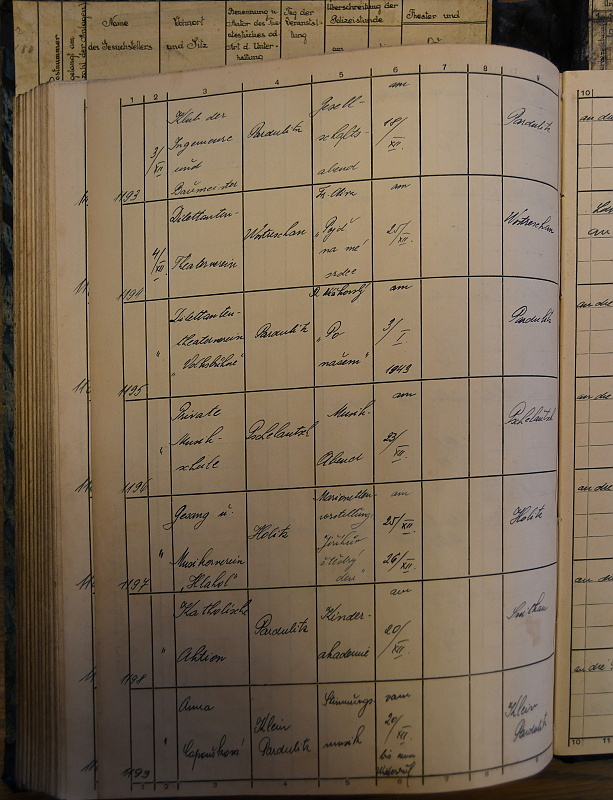 Name
des Gesuchstellers
Wohnort
und Sitz
Benennung u.
haltung
Tag der
Veranstal-
tung
Überschreitung der
Polizeistunde
am
Theater und
1 2 3 4 5 6 7 8 9
10
1193
3/XII
Klub der
Ingenieure
und
Baumeister
Pardubitz
Gesell-
schafts-
abend
am
18/XII.
Pardubitz
1194
4/XII
Dilettanten-
Theaterverein
Wostreschan
„Pojď
na mé
srdce
am
25/XII.
Wostreschan
1195
"
Dilettanten-
theaterverein
„Volksbühne"
Pardubitz
„Po
našem"
am
3/I
1943
Pardubitz
1196
"
Private
Musik-
schule
Pschelautsch
Musik-
Abend
am
23/XII.
Pschelautsch
1197
"
Gesang u.
Musikerverein
„Hlahol"
Holitz
Marionetten-
vorstellung
Jiříkův
štědrý
den"
am
25/XII.
26/XII.
Holitz
1198
"
Katholische
Aktion
Pardubitz
Kinder-
akademie
am
20/XII.
1199
"
Anna
Klein
Pardubitz
Stimmungs-
musik
vom
20/XII.
bis zum
Widerruf
Klein
Pardubitz
10 11